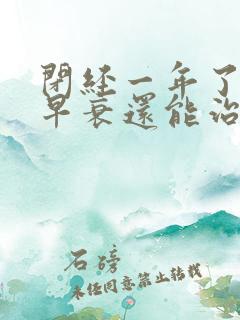 閉經一年了
早衰還能治
石磅
未任同意禁止轉載